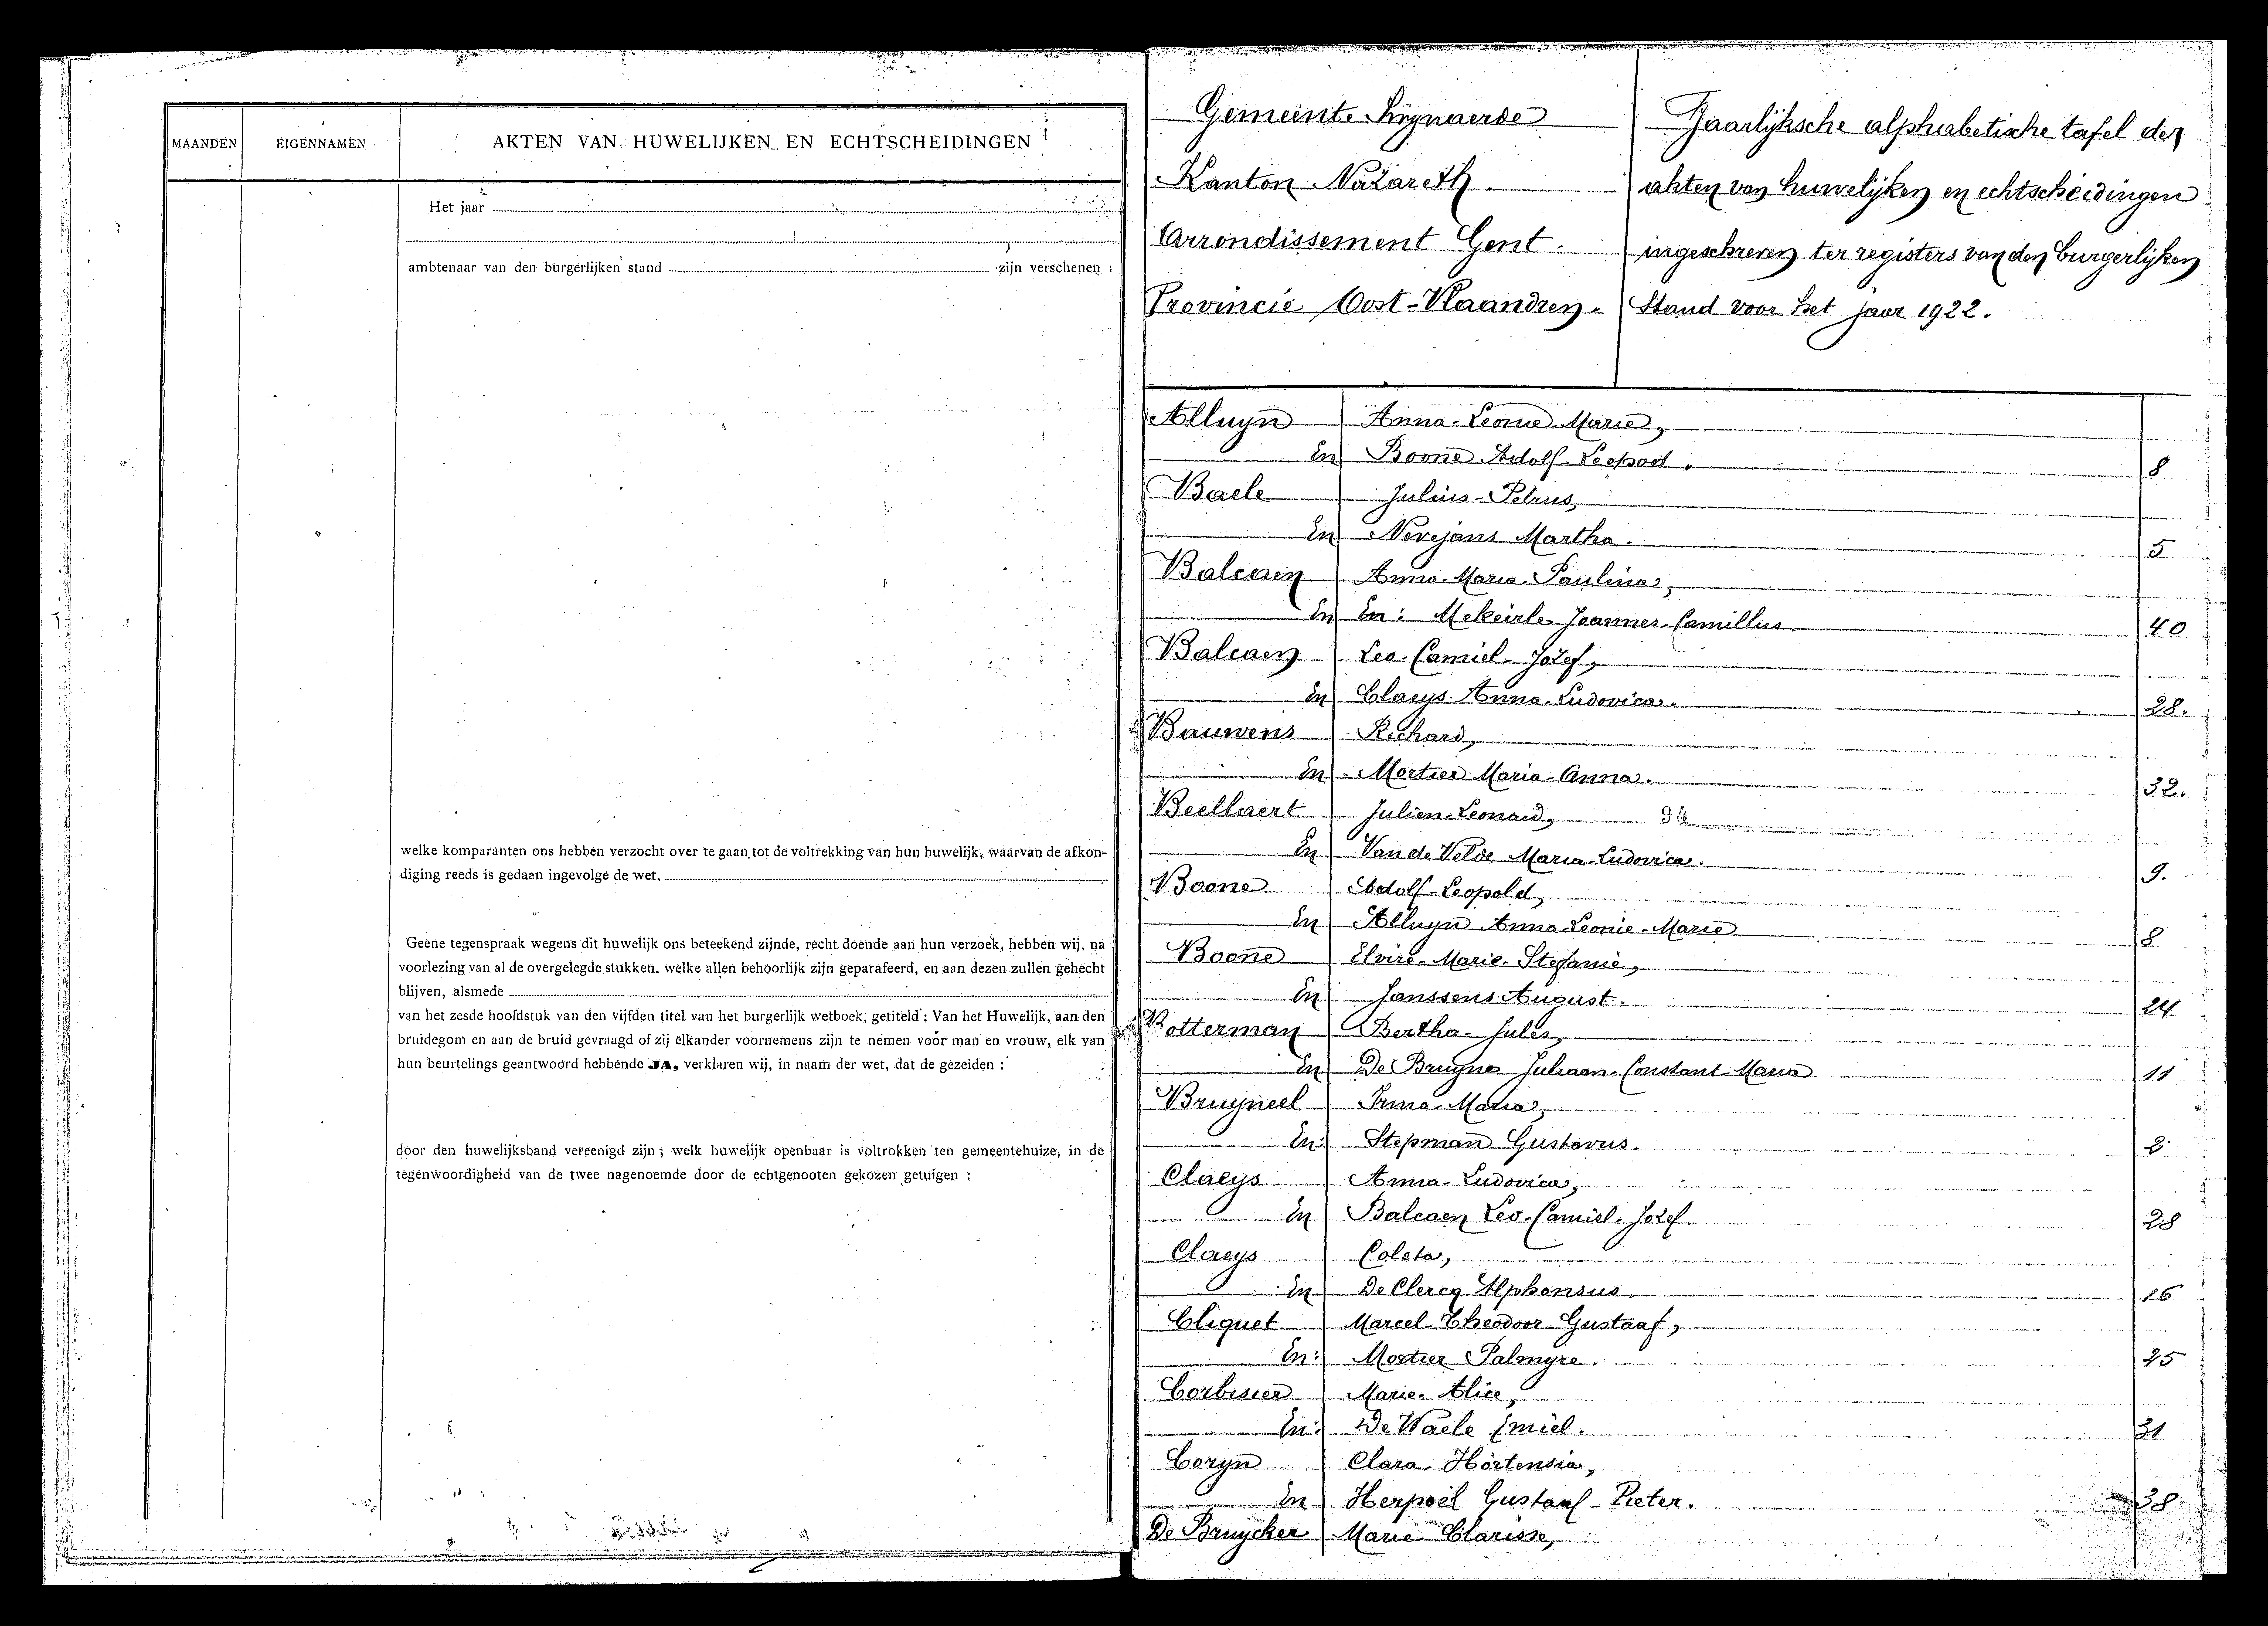 MAANDEN EIGENNAMEN AKTEN VAN HUWELIJKEN EN ECHTSCHEIDINGEN
Het jaar
ambtenaar van den burgerlijken stand zijn verschenen :
welke komparanten ons hebben verzocht over te gaan tot de voltrekking van hun huwelijk, waarvan de afkon-
diging reeds is gedaan ingevolge de wet,
Geene tegenspraak wegens dit huwelijk ons beteekend zijnde, recht doende aan hun verzoek, hebben wij, na
voorlezing van al de overgelegde stukken. welke allen behoorlijk zijn geparafeerd, en aan dezen zullen gehecht
blijven, alsmede
van het zesde hoofdstuk van den vijfden titel van het burgerlijk wetboek, getiteld : Van het Huwelijk, aan den
bruidegom en aan de bruid gevraagd of zij elkander voornemens zijn te nemen voor man en vrouw, elk van
hun beurtelings geantwoord hebbende JA, verklaren wij, in naam der wet, dat de gezeiden :
door den huwelijksband vereenigd zijn ; welk huwelijk openbaar is voltrokken ten gemeentehuize, in de
tegenwoordigheid van de twee nagenoemde door de echtgenooten gekozen getuigen :
Gemeente Swijnaerde
Kanton Nazareth
Arrondissement Gent.
Provincie Oost-Vlaandren.
Jaarlijksche alphabetische tafel der
akten van huwelijken en echtscheidingen
ingeschreven ter registers van den burgerlijken
Stand voor het jaar 1922.
Alluyn Anna-Leonie-Marie,
En Boone Adolf-Leopold. 8
Baele Julius-Petrus,
En Nevejans Martha. 5
Balcaen Anna-Maria-Paulina,
En En: Mekeirle Joannes-Camillus 40
Balcaen Leo-Camiel-Jozef,
En Claeys Anna-Ludovica. 28.
Bauwens Richard,
En Mortier Maria-Anna. 32.
Beellaert Julien-Leonard,
En Van de Velde Maria-Ludovica. 9.
Boone Adolf-Leopold,
En Alluyn Anna-Leonie-Marie 8
Boone Elvire-Marie-Stefanie,
En Janssens August. 24
Botterman Bertha-Jules,
En De Bruyne Juliaan-Constant-Maria 11
Bruyneel Irma-Maria,
En: Stepman Gustavus. 2
Claeys Anna-Ludovica,
En Balcaen Leo-Camiel-Jozef. 28
Claeys Coleta,
En De Clercq Alphonsus. 16
Cliquet Marcel-Theodoor-Gustaaf,
En: Mortier Palmyre. 25
Corbisier Marie-Alice,
En: De Waele Emiel. 31
Coryn Clara-Hortensia,
En Herpoel Gustaaf-Pieter. 38
De Bruycker Marie Clarisse,